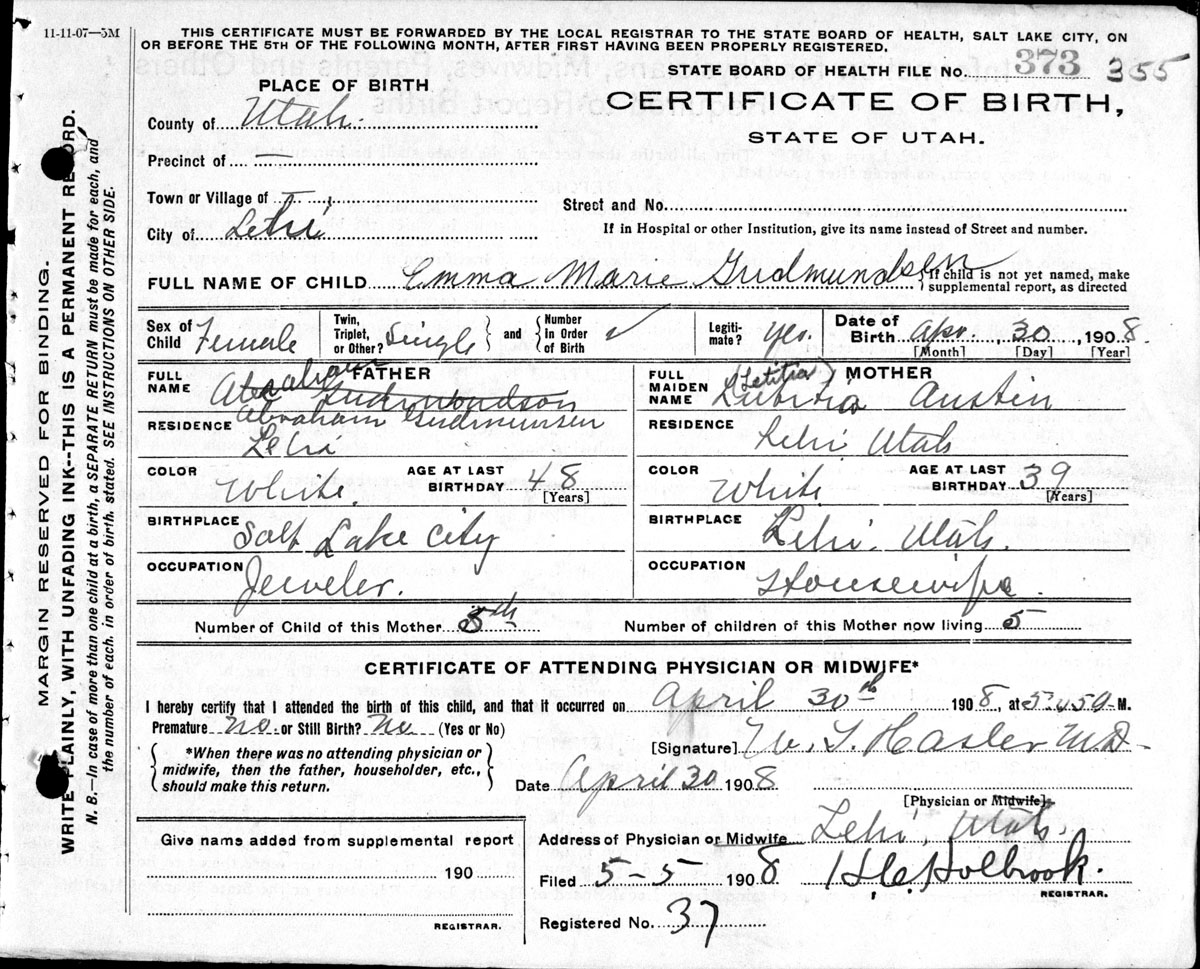 11-11-07—5M
THIS CERTIFICATE MUST BE FORWARDED BY THE LOCAL REGISTRAR TO THE STATE BOARD OF HEALTH, SALT LAKE CITY, ON
OR BEFORE THE 5TH OF THE FOLLOWING MONTH, AFTER FIRST HAVING BEEN PROPERLY REGISTERED.
STATE BOARD OF HEALTH FILE No. 373 355
PLACE OF BIRTH
CERTIFICATE OF BIRTH,
STATE OF UTAH.
County of Utah.
Precinct of —
Town or Village of
Street and No.
City of Lehi
If in Hospital or other Institution, give its name instead of Street and number.
FULL NAME OF CHILD Emma Marie Gudmundsen
If child is not yet named, make
supplemental report, as directed
Sex of Child Female
Twin, Triplet, or Other? Single and Number in Order of Birth ✓
Legitimate? yes.
Date of Birth Apr. 30 1908
[Month] [Day] [Year]
FATHER
FULL NAME Gudmondson
Abraham Gudmunsen
RESIDENCE Lehi
COLOR White.
AGE AT LAST BIRTHDAY 48
[Years]
BIRTHPLACE Salt Lake City
OCCUPATION Jeweler.
MOTHER
FULL MAIDEN NAME (Letitia) Austin
RESIDENCE Lehi Utah
COLOR White
AGE AT LAST BIRTHDAY 39
[Years]
BIRTHPLACE Lehi. Utah.
OCCUPATION Housewife.
Number of Child of this Mother 5th
Number of children of this Mother now living 5
CERTIFICATE OF ATTENDING PHYSICIAN OR MIDWIFE*
I hereby certify that I attended the birth of this child, and that it occurred on April 30th 1908, at 5:45 A M.
Premature no. or Still Birth? No (Yes or No)
*When there was no attending physician or
midwife, then the father, householder, etc.,
should make this return.
[Signature] W. T. Hasler M.D.
Date April 30 1908
[Physician or Midwife]
Give name added from supplemental report
190
REGISTRAR.
Address of Physician or Midwife Lehi, Utah.
Filed 5-5 1908 H.C. Holbrook.
REGISTRAR.
Registered No. 37
MARGIN RESERVED FOR BINDING.
WRITE PLAINLY, WITH UNFADING INK--THIS IS A PERMANENT RECORD.
N. B.—In case of more than one child at a birth, a SEPARATE RETURN must be made for each, and
the number of each, in order of birth, stated. SEE INSTRUCTIONS ON OTHER SIDE.